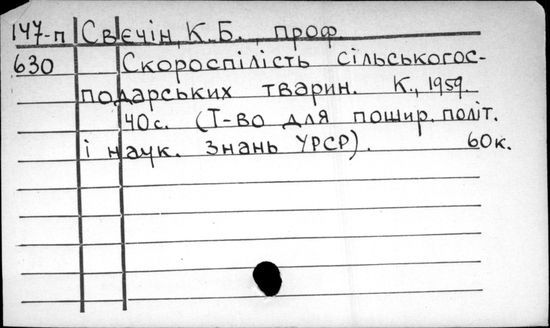 147-п Свєчін, К.Б., проф.
630 Скороспілість сільськогос-
подарських тварин. К., 1959.
40с. (Т-во для пошир. політ.
і наук. знань УРСР). 60к.